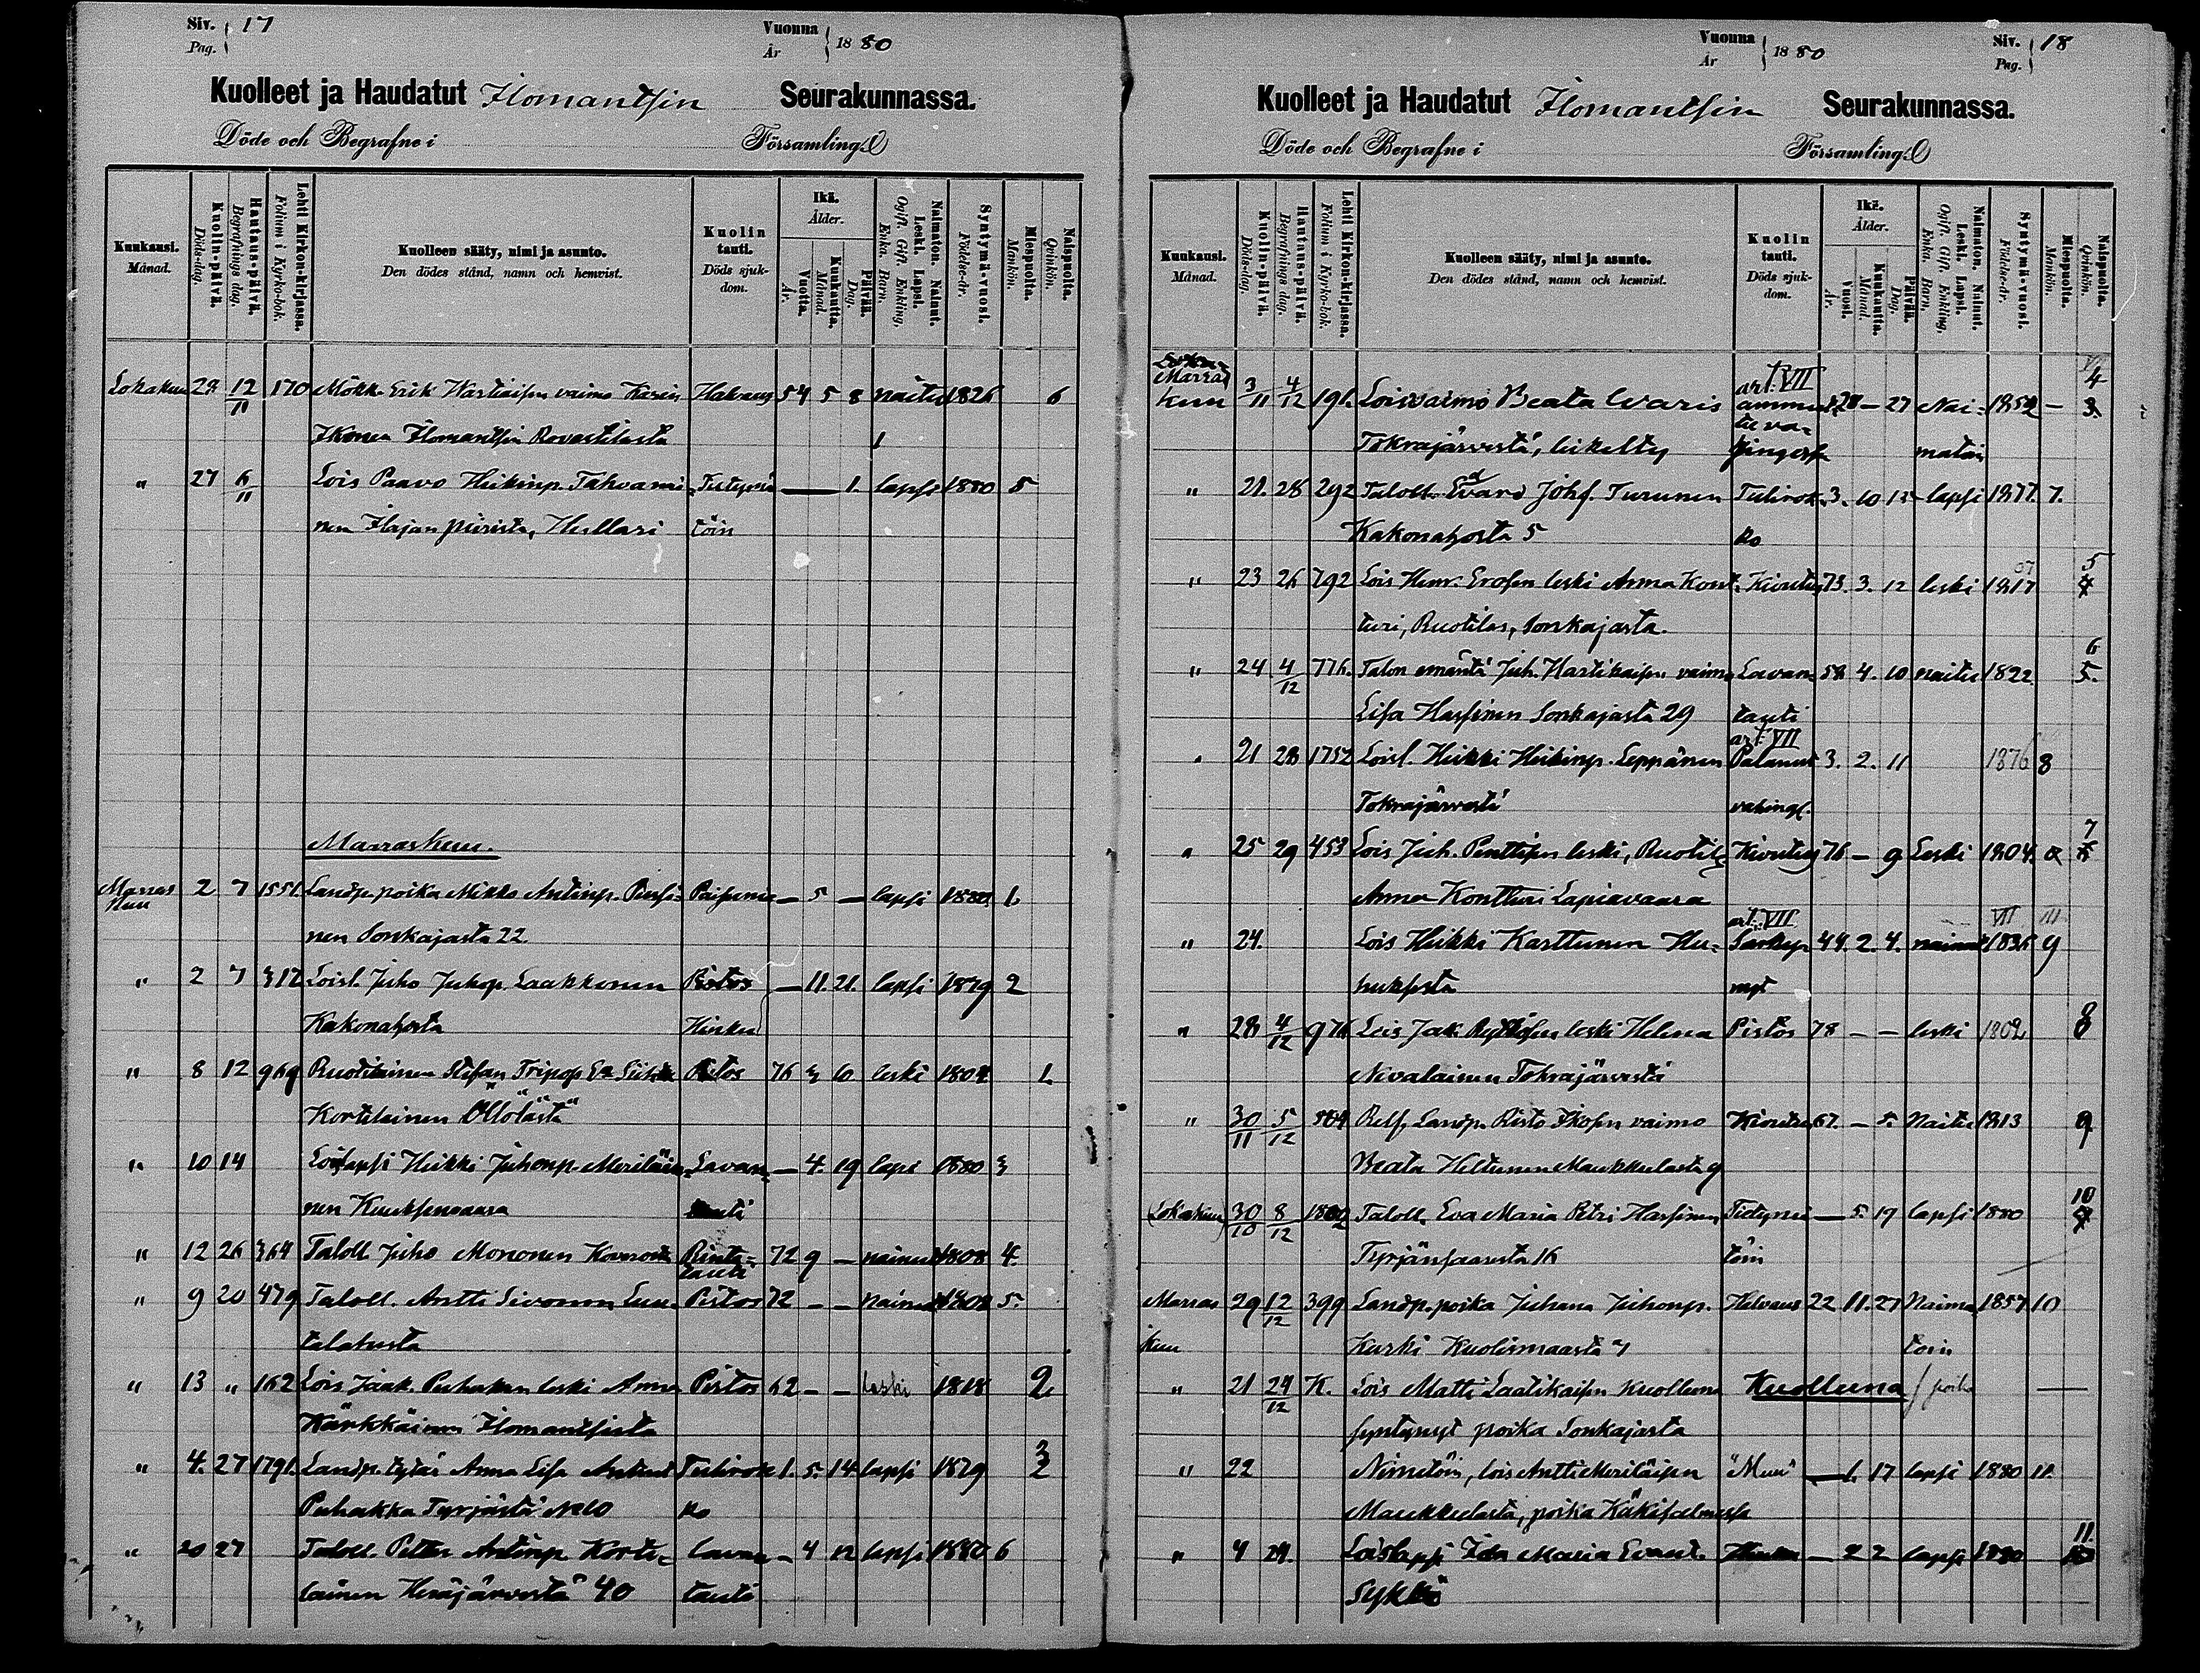 Siv. 17
Pag.
Vuonna 1880
År
Kuolleet ja Haudatut Ilomantsin Seurakunnassa.
Döde och Begrafne i Församling.
Kuukausi. Månad.
Kuolin-päivä. Döds-dag.
Hautaus-päivä. Begrafnings dag.
Lehti Kirkon-kirjassa. Folium i Kyrko-bok.
Kuolleen sääty, nimi ja asunto.
Den dödes stånd, namn och hemvist.
Kuolin tauti. Döds sjuk-dom.
Ikä. Ålder.
Vuotta. År.
Kuukautta. Månad.
Päivää. Dag.
Naimaton. Nainut. Leski. Lapsi. Ogift. Gift. Enkling. Enka. Barn.
Syntymä-vuosi. Födelse-år.
Miespuolta. Mankön.
Naispuolta. Qvinkön.
Lokakuu 29 12/11 170 Mökk Erik Hartikaisen vaimo Karin Halvaus 54 5 8 naitu 1826 6
Ikonen Ilomantsin Rovastilasta
" 27 6/11 Lois Paavo Heikinp. Tahvani- Tietymä — 1. lapsi 1880 5
nen Ilajan piiristä, Hullari töin
Marraskuu.
Marras 2 7 1551. Landp. poika Mikko Anttinp. Pussi- Paisuma — 5 — lapsi 1880 1.
kuu
nen Sonkajasta 22.
" 2 7 312 Loisl. Juho Juhop. Laakkonen Pistos — 11. 21. lapsi 1879 2
Kakonahosta Hinku
" 8 12 969 Ruotilainen Stefan Pistos 76 3 10 leski 1804 1.
Kortelainen Ollölästä
" 10 14 Loislapsi Heikki Juhonp. Meriläi- Lavan- — 4. 19 lapsi 1880 3
nen Kuuksenvaara tauti
" 12 26 364 Taloll. Juho Mononen Koverosta Rinta- 72 9 — nainut 1808 4.
tauti
" 9 20 479 Taloll. Antti Sivonen Luu- Pistos 72 — — nainut 1808 5.
talahesta
" 13 " 162 Lois Jaak. Puhakan leski Anna Pistos 62 — — leski 1818 2
Kärkkäinen Ilomantsista
" 4. 27 1791. Landp. tytär Anna Lisa Antint. Tulirok 1. 5. 14 lapsi 1879 3
Puhakka Tyrjästä No 10 ko
" 20 27 Taloll. Petter Antinp. Korte- lavan — 4 12 lapsi 1880 6
lainen Heräjärvestä 40 tauti
Vuonna 1880
År
Siv. 18
Pag.
Kuolleet ja Haudatut Ilomantsin Seurakunnassa.
Döde och Begrafne i Församling.
Kuukausi. Månad.
Kuolin-päivä. Döds-dag.
Hautaus-päivä. Begrafnings dag.
Lehti Kirkon-kirjassa. Folium i Kyrko-bok.
Kuolleen sääty, nimi ja asunto.
Den dödes stånd, namn och hemvist.
Kuolin tauti. Döds sjuk-dom.
Ikä. Ålder.
Vuosi. År.
Kuukautta. Månad.
Päivää. Dag.
Naimaton. Nainut. Leski. Lapsi. Ogift. Gift. Enkling. Enka. Barn.
Syntymä-vuosi. Födelse-år.
Miespuolta. Mankön.
Naispuolta. Qvinkön.
Marras
kuu 3/11 4/12 191. Loisvaimo Beata Waris art. VII 28 — 27 Nai- 1852 — 4
Tokrajärvestä, leikelty maton
" 21. 28 292 Taloll. Edvard Johs. Turunen Tulirok. 3. 10 15 lapsi 1877. 7.
Kakonahosta 5 ko
" 23 26 792 Lois Henr. Erosen leski Anna Kont- Kivutus 73. 3. 12 leski 1817 07 5
turi, Ruotilas, Sonkajasta.
" 24 4/12 776. Talon emäntä Juh. Hartikaisen vaimo Lavan 58 4. 10 naitu 1822. 6
Lisa Hassinen Sonkajasta 29 tauti
" 21 28 1752 Loisl. Heikki Heikinp. Leppänen art. VII Palanut 3. 2. 11 1876 8
Tokrajärvestä vahingl.
" 25 29 453 Lois Juh. Penttisen leski, Ruotil Kivutus 76 — 9 Leski 1804. 7
Anna Kontturi Lapiovaara
" 24. Lois Heikki Karttunen Hu- art. VII 44. 2. 4. nainut 1836 9
huksesta
" 28 4/12 976 Lois Jak. leski Helena Pistos 78 — — leski 1802 8
Nevalainen Tokrajärvestä
" 30/11 5/12 504 Landp. Risto Ikosen vaimo Kivutus 67. — 5. Naitu 1813 9
Beata Hiltunen Maukkulasta 9
(Lokakuu) 30/10 8/12 Taloll. Eva Maria Petri Hassinen Tietymä — 5. 17 lapsi 1880 10
Tyrjänsaaresta 16 töin
Marras 29 12/12 399 Landp. poika Juhana Juhonp. Halvaus 22 11. 27 Naima 1857 10
kuu Kurki Kuolismaasta 4 toin
" 21 24/12 K. Lois Matti Laatikaisen kuolluna Kuolluna poika —
syntynyt poika Sonkajasta
" 22 Nimetön, lois Antti Meriläisen "Muu" — 1. 17 lapsi 1880 11.
Maukkulasta, poika Käkisalmessa
" 4 29. Loislapsi Ida Maria Hinku — 2 2 lapsi 1880 11.
Sykkö